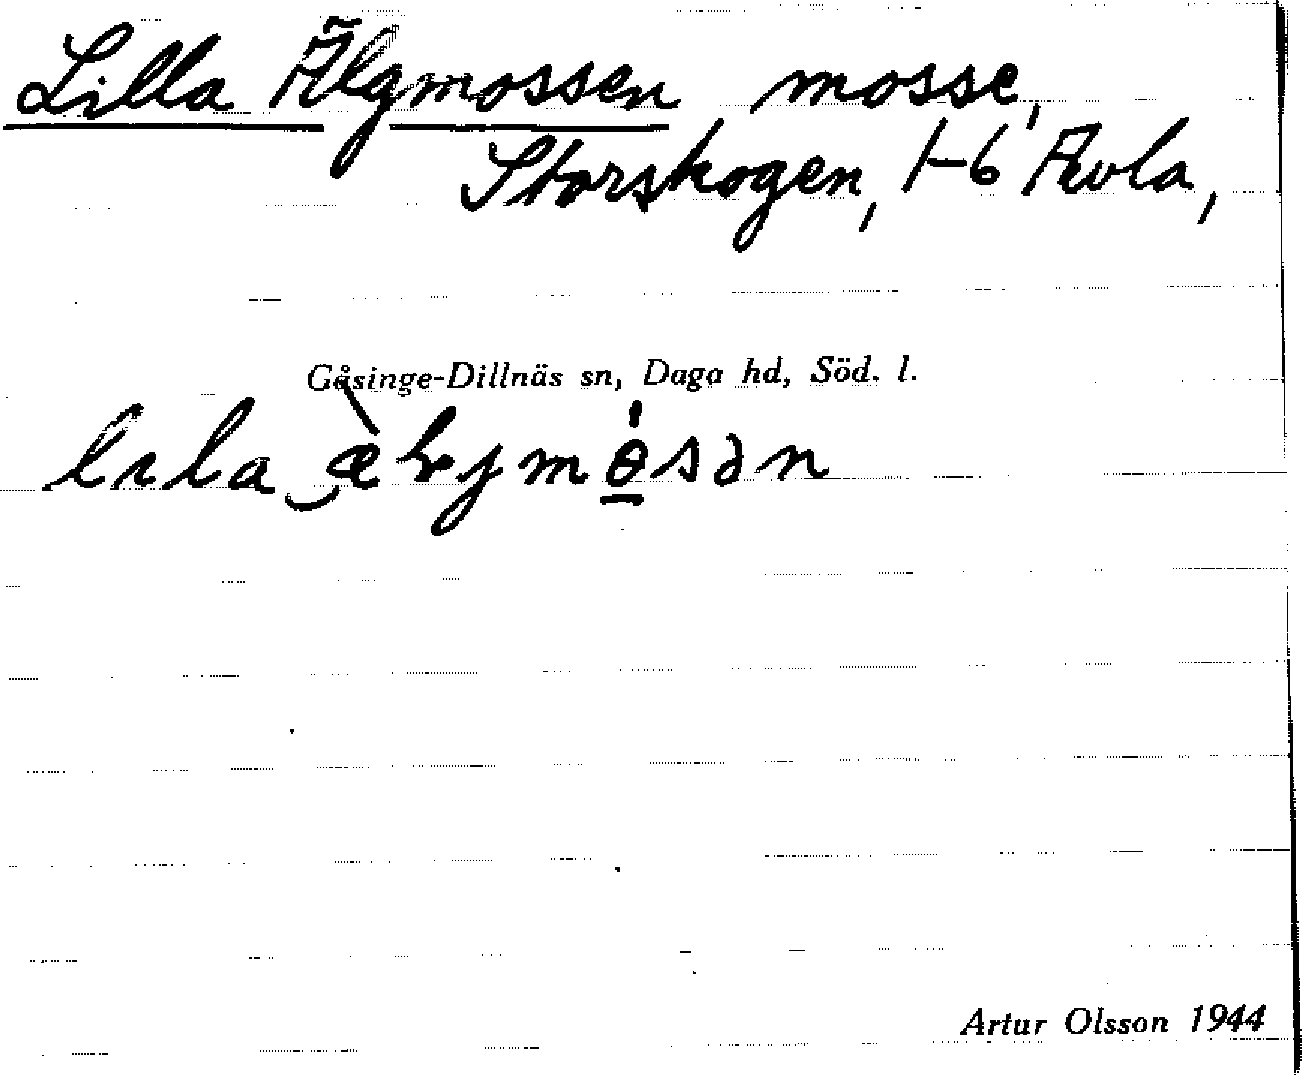 Lilla Älgmossen mosse,
Storskogen, 1-6 Avla,
Gåsinge-Dillnäs sn, Daga hd, Söd. l.
Artur Olsson 1944